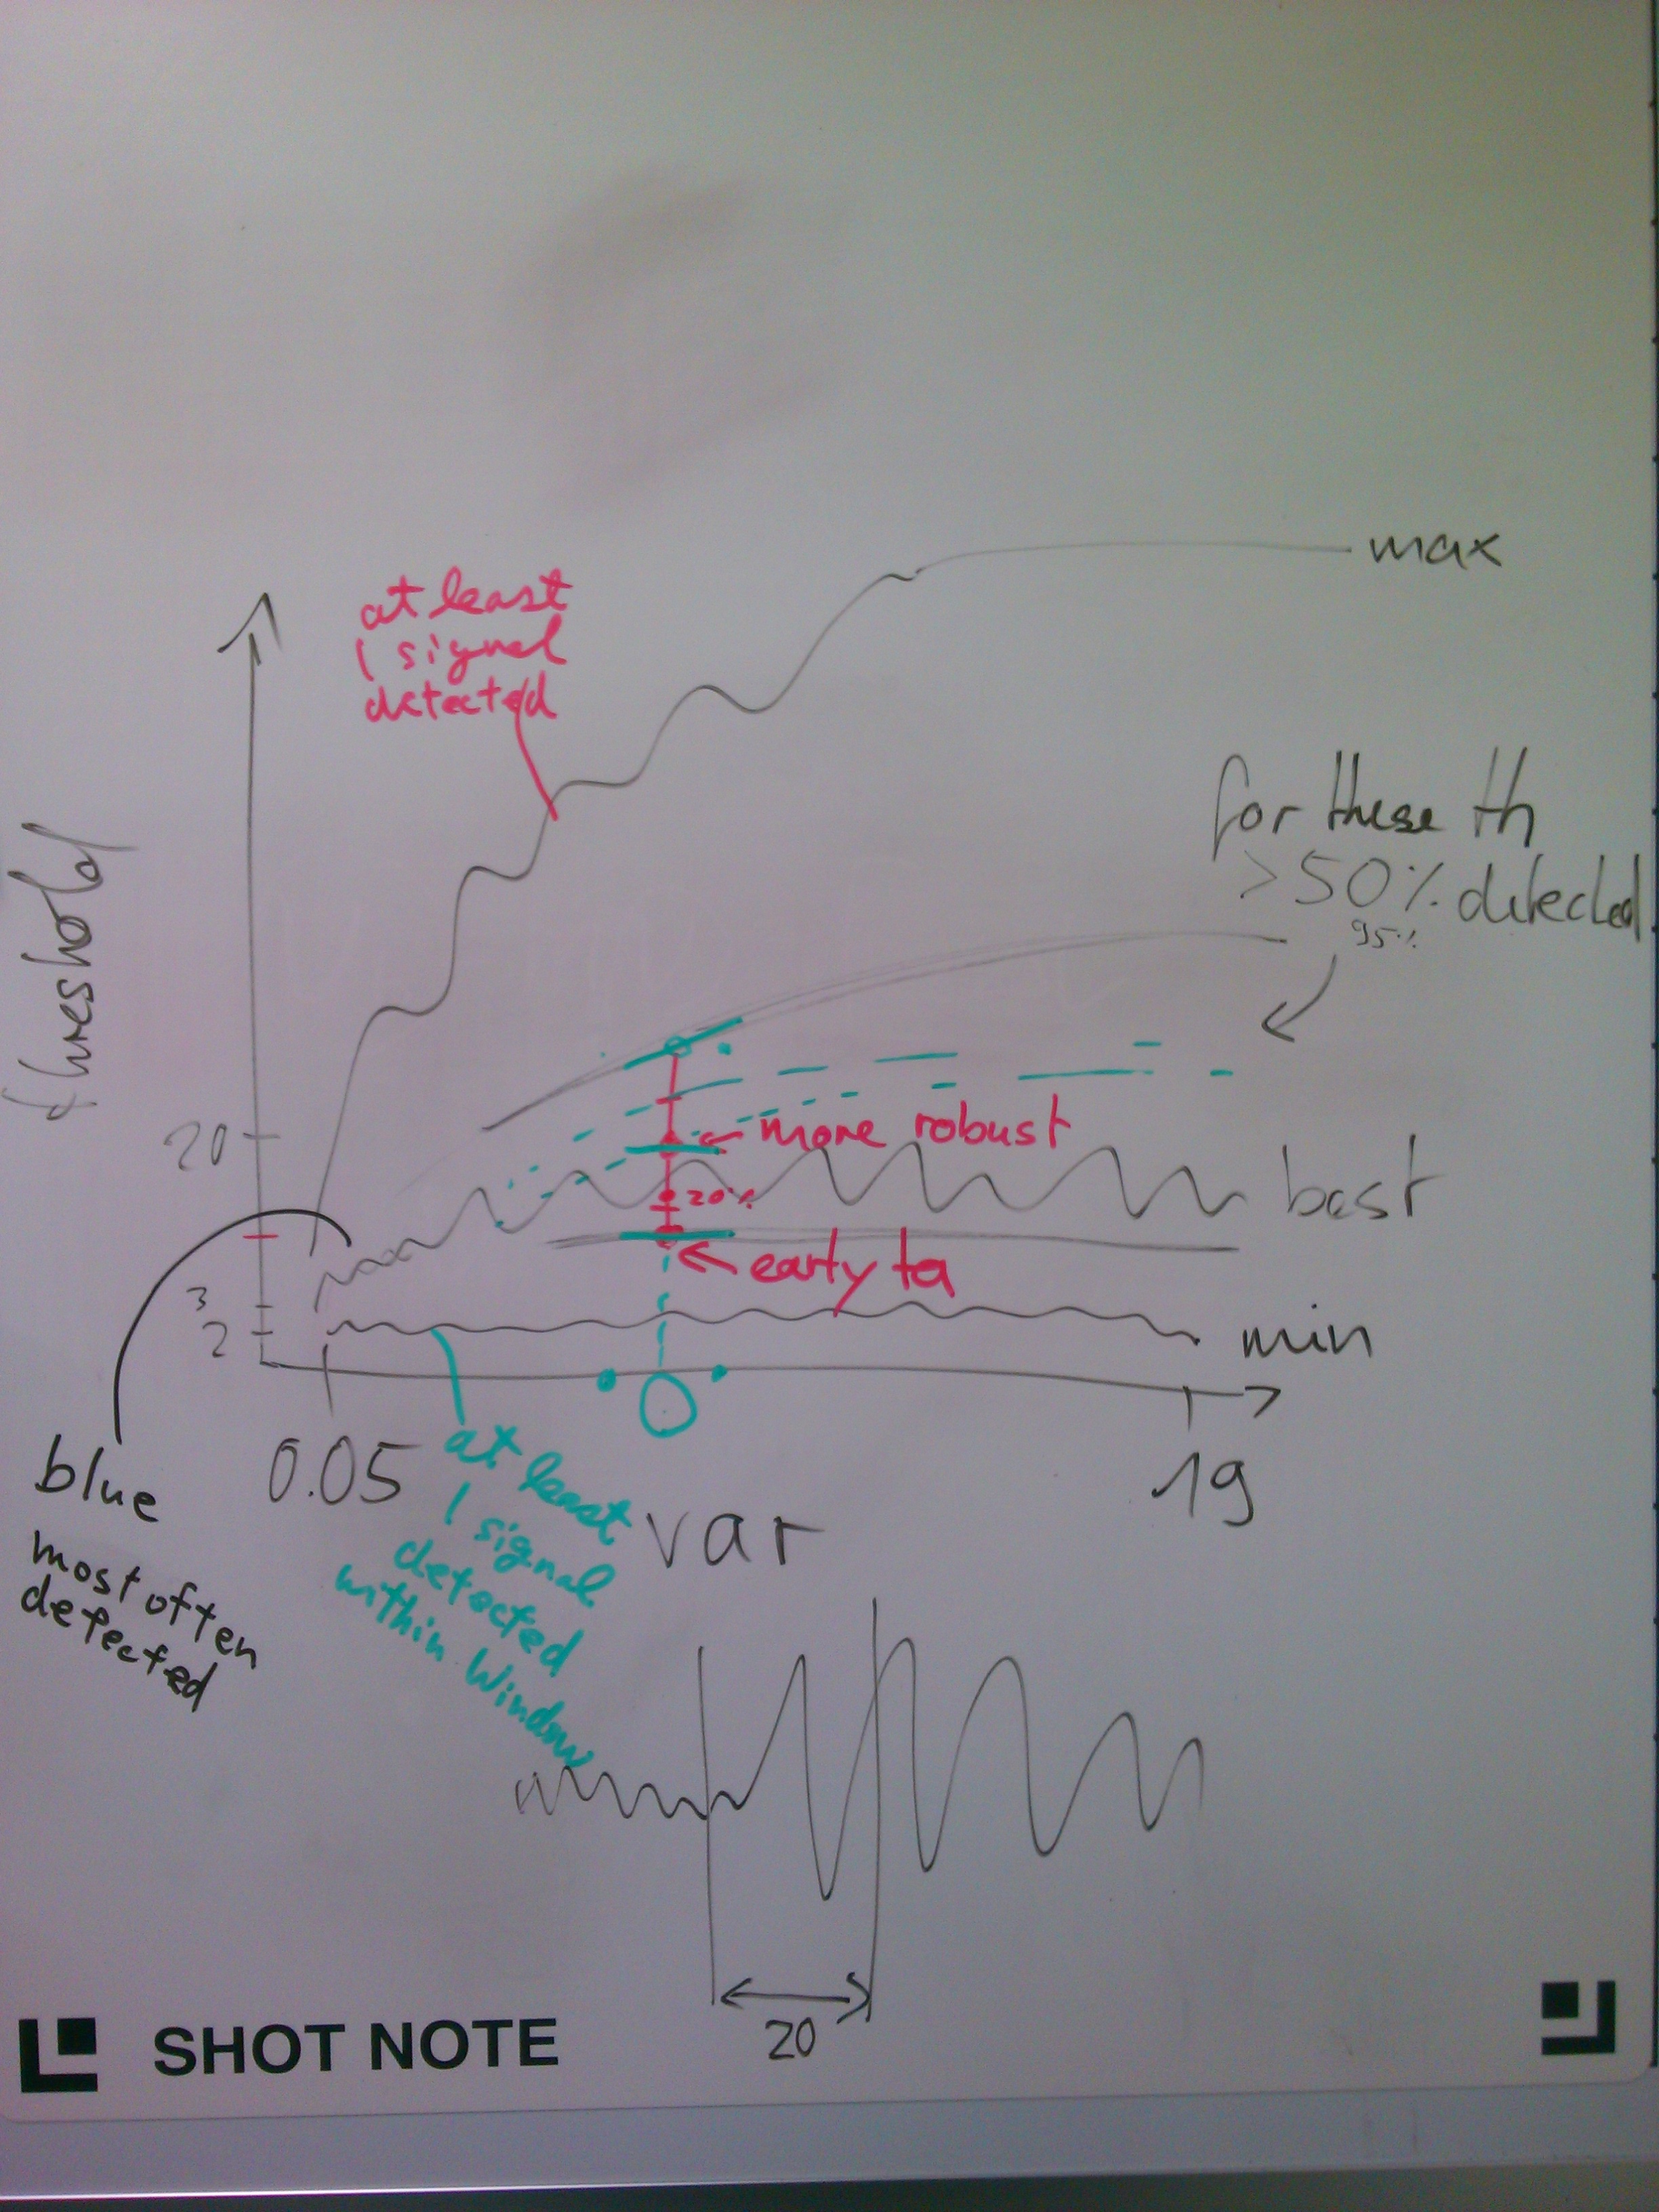 max
at least
1 signal
detected
for these th
> 50% detected
95%
threshold
20
more robust
best
20%
early ta
3
2
min
0.05
19
var
blue
most often
detected
at least
1 signal
detected
within Window
20
SHOT NOTE